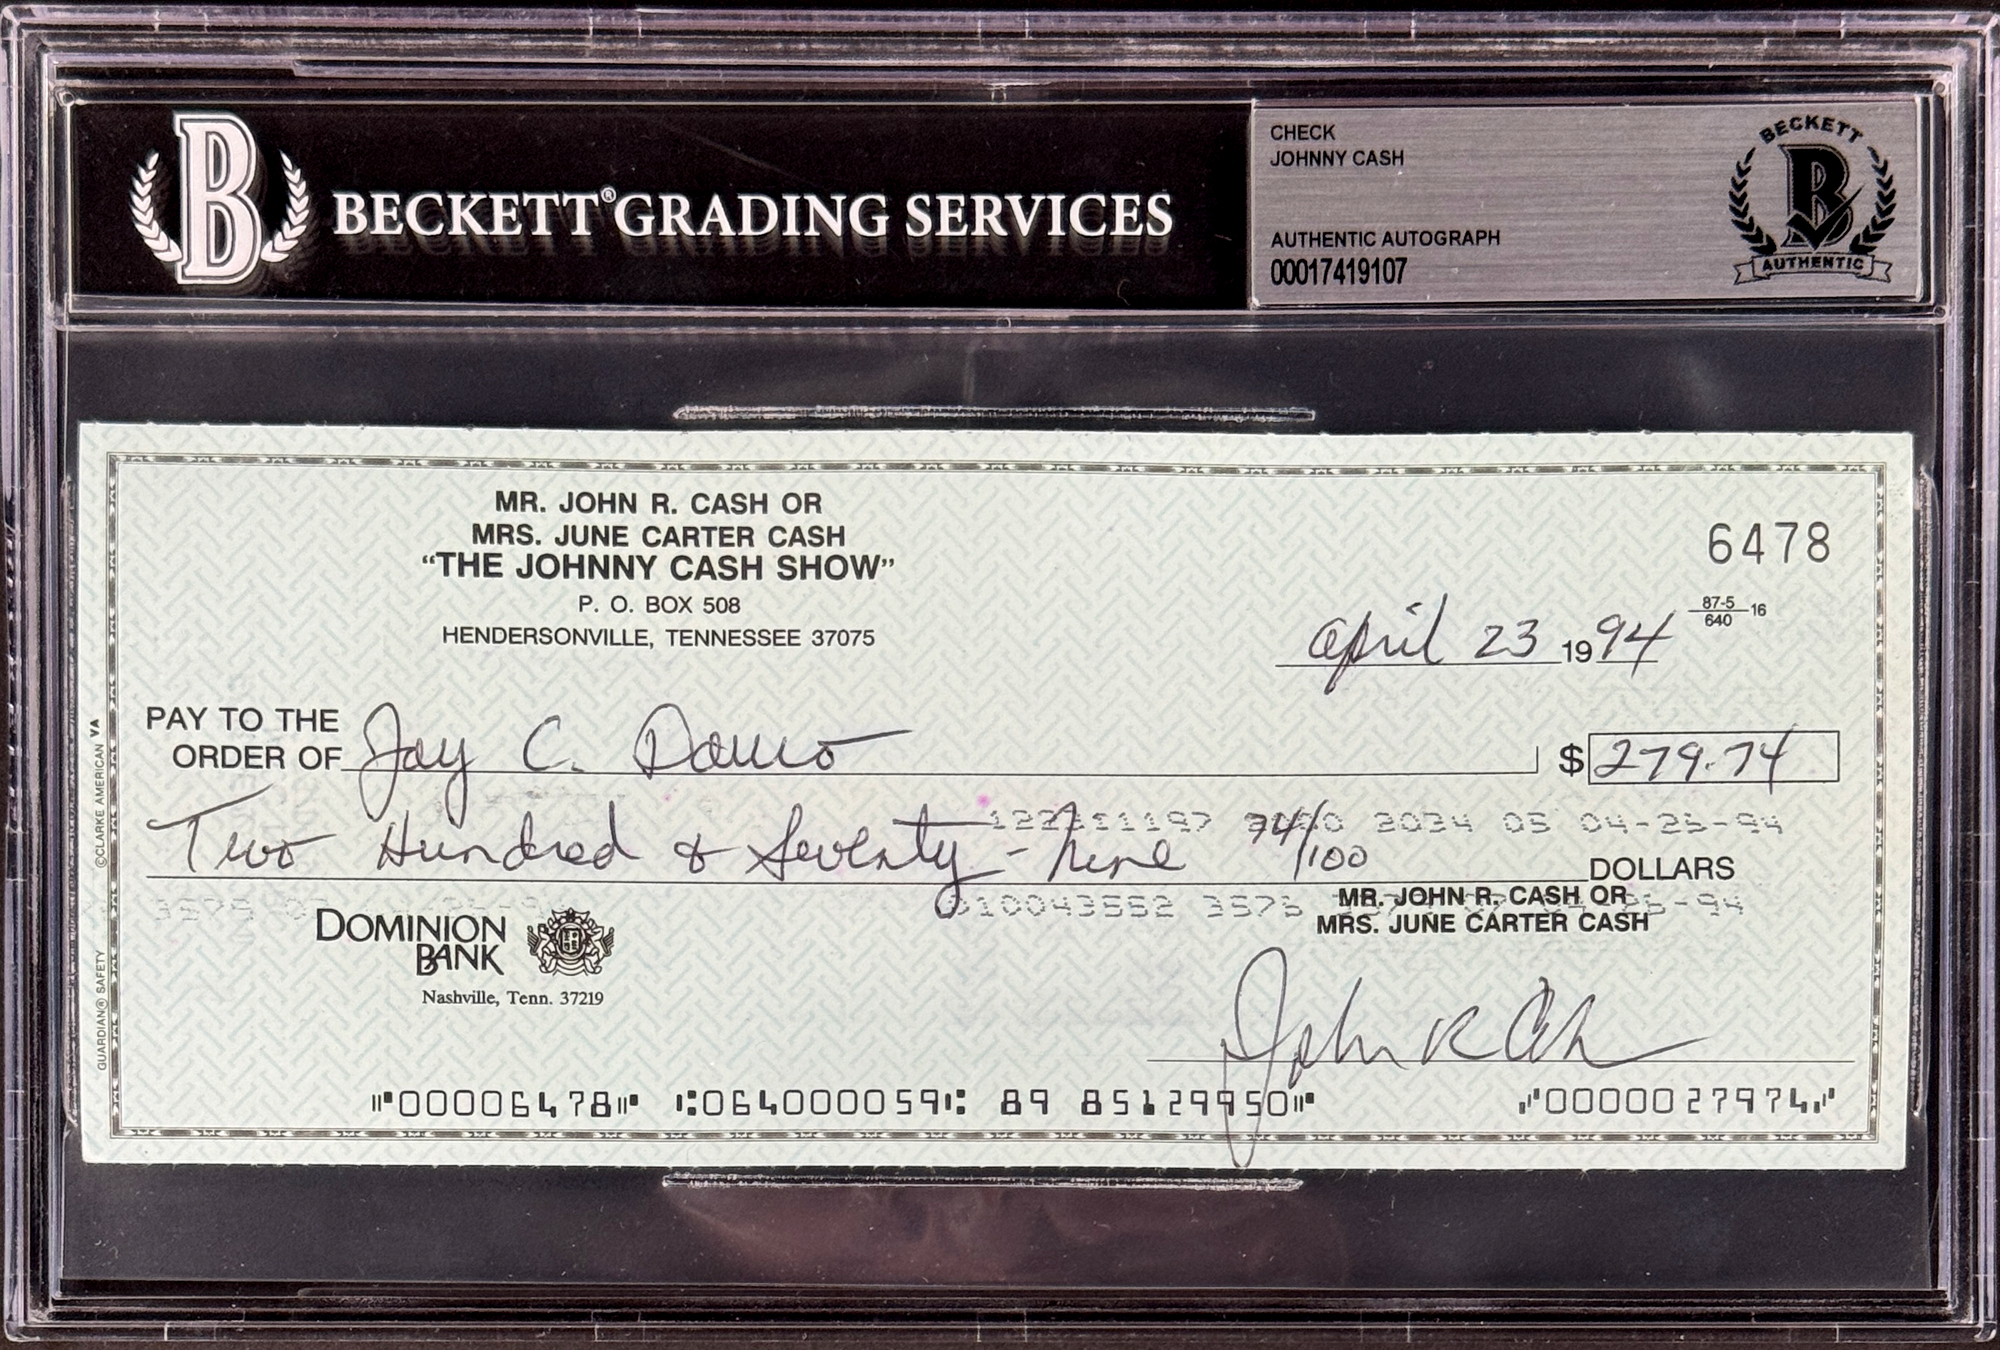 B
BECKETT® GRADING SERVICES
CHECK
JOHNNY CASH
AUTHENTIC AUTOGRAPH
00017419107
BECKETT
B
AUTHENTIC
MR. JOHN R. CASH OR
MRS. JUNE CARTER CASH
"THE JOHNNY CASH SHOW"
P. O. BOX 508
HENDERSONVILLE, TENNESSEE 37075
6478
87-5
640
16
april 23 1994
PAY TO THE
ORDER OF Jay C. Dauro
$ 279.74
Two Hundred & Seventy-Nine 74/100 DOLLARS
2034 05 04-25-94
610043552 3575
MR. JOHN R. CASH OR
MRS. JUNE CARTER CASH
DOMINION
BANK
Nashville, Tenn. 37219
John R Cash
⑈00006478⑈ ⑆064000059⑆ 89 85129950⑈ ⑇0000027974⑇
GUARDIAN® SAFETY ©CLARKE AMERICAN VA